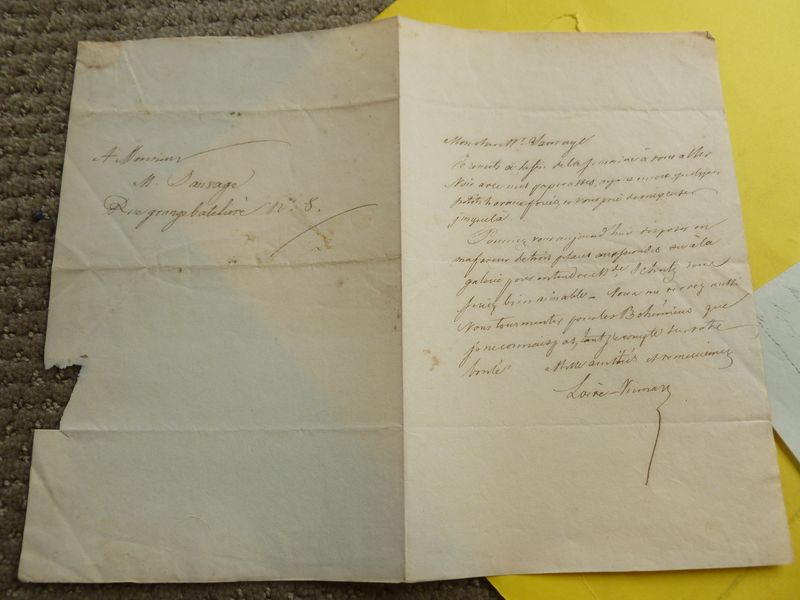 A Monsieur
M. Sauvage
Rue grange bateliere No. 8.
Mon cher Mr. Sauvage
Je remets à la fin de la semaine à vous aller
Voir avec mes paperasses, ayant encore quelques
petits travaux forcés, et vous prie de m'excuser
jusque là
Pourriez vous aujourd'hui disposer en
ma faveur de trois places au parterre ou à la
galerie pour entendre Mde. Schutz vous
seriez bien aimable - Nous ne
Vous tourmenter pour les Bohémiens que
je ne connais pas, tant je compte sur votre
bonté. Mille amitiés et remerciemens
Loire-Vimar